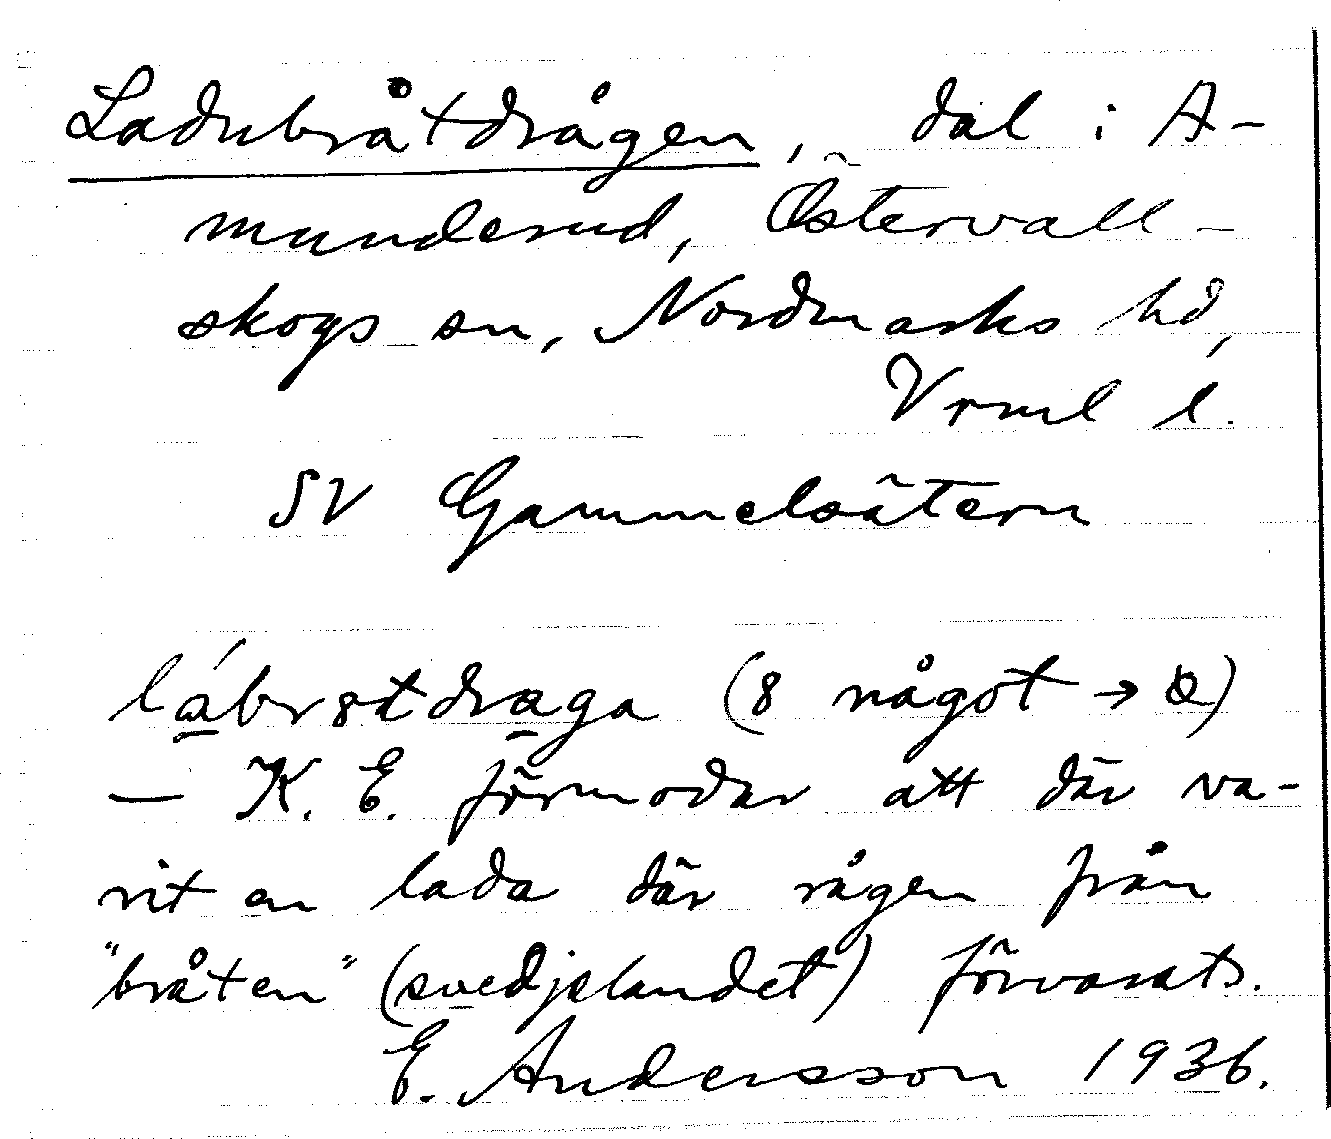 Ladubråtdrågen, dal i A-
munderud, Östervall-
skogs sn, Nordmarks hd,
Vrml l.
SV Gammelsätern
lábr8tdraga (8 något → α)
— K. E. förmodar att där va-
rit en lada där rågen från
"bråten" (svedjelandet) förvarats.
E. Andersson 1936.